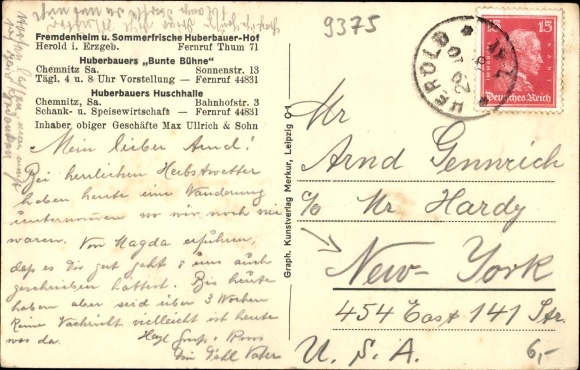 9375
Fremdenheim u. Sommerfrische Huberbauer-Hof
Herold i. Erzgeb. Fernruf Thum 71
Huberbauers „Bunte Bühne"
Chemnitz Sa. Sonnenstr. 13
Tägl. 4 u. 8 Uhr Vorstellung — Fernruf 44831
Huberbauers Huschhalle
Chemnitz Sa. Bahnhofstr. 3
Schank- u. Speisewirtschaft — Fernruf 44831
Inhaber obiger Geschäfte Max Ullrich & Sohn
Mein lieber Arnd!
Bei herrlichem Herbstwetter
haben heute eine Wanderung
unternommen wo wir noch nie
waren. Von Magda erfuhren,
dass es dir gut geht & uns auch
geschrieben hattest. Bis heute
haben aber seid über 3 Wochen
keine Nachricht vielleicht ist heute
was da. Herzl. Gruß &
Dein Vater
Graph. Kunstverlag Merkur, Leipzig O 1
HEROLD
15 15
IMMANUEL KANT
Deutsches Reich
Mr
Arnd Gennrich
c/o Mr Hardy
New-York
454 East 141 Str.
U. S. A.
6,-